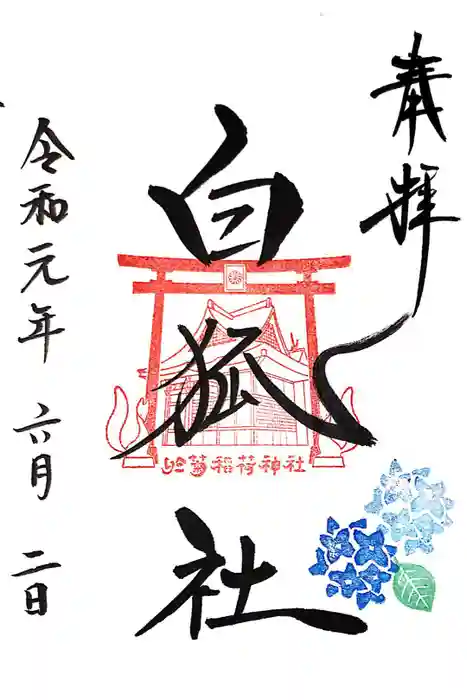 奉拝
白狐社
於菊稲荷神社
令和元年 六月 二日